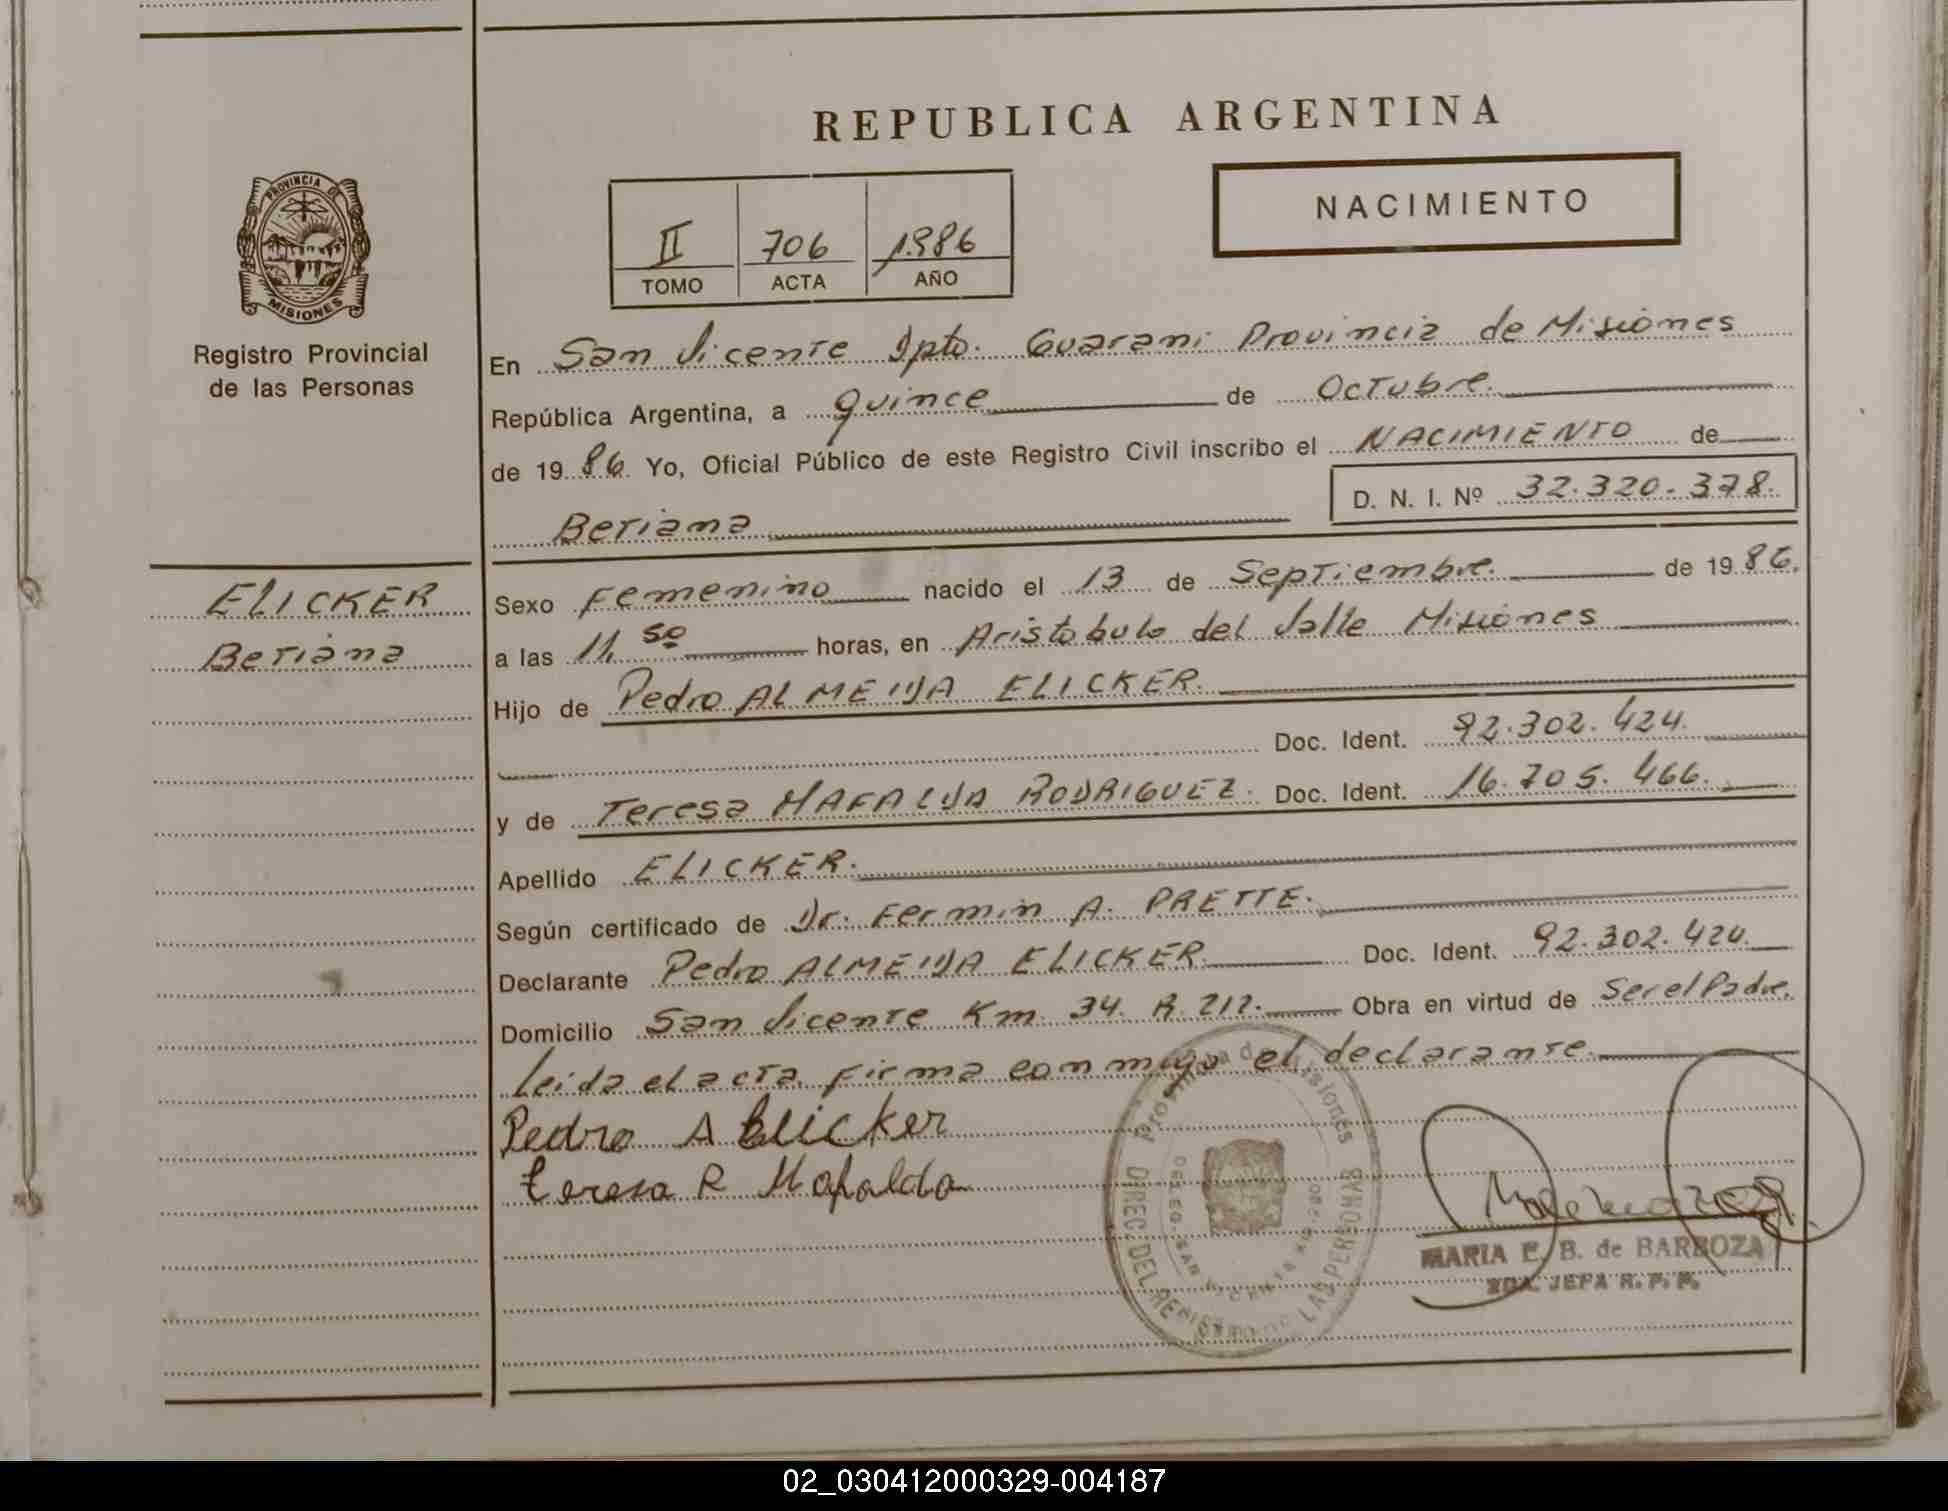 REPUBLICA ARGENTINA
NACIMIENTO
PROVINCIA DE
MISIONES
Registro Provincial
de las Personas
II 706 1986
TOMO ACTA AÑO
En San Vicente Dpto. Guarani Provincia de Misiones
República Argentina, a quince de Octubre.
de 1986. Yo, Oficial Público de este Registro Civil inscribo el NACIMIENTO de
D. N. I. Nº 32.320.378.
Betiana
ELICKER
Betiana
Sexo Femenino nacido el 13 de Septiembre. de 1986.
a las 11,50 horas, en Aristobulo del Valle Misiones
Hijo de Pedro ALMEIDA ELICKER.
Doc. Ident. 92.302.424.
y de Teresa MAFALDA RODRIGUEZ. Doc. Ident. 16.705.466.
Apellido ELICKER.
Según certificado de Dr. Fermin A. PRETTE.
Declarante Pedro ALMEIDA ELICKER. Doc. Ident. 92.302.424.
Domicilio San Vicente Km. 34. R. 212. Obra en virtud de Ser el Padre.
Leida el acta, firma conmigo el declarante.
Pedro A Elicker
teresa R Mafalda
Provincia de Misiones
DIREC. DEL REGISTRO DE LAS PERSONAS
MARIA E. B. de BARBOZA
2DA. JEFA R. P. P.
02_030412000329-004187